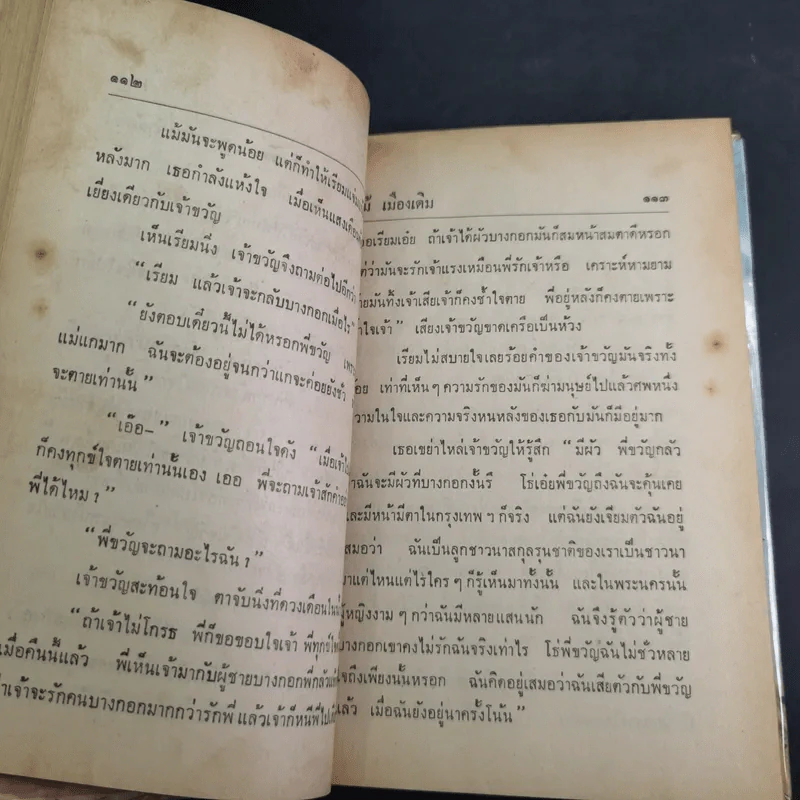 ๑๑๒
แม้มันจะพูดน้อย แต่ก็ทำให้เรียม
หลังมาก เธอกำลังแห้งใจ เมื่อเห็นแสงเดือน
เยี่ยงเดียวกับเจ้าขวัญ
เห็นเรียมนิ่ง เจ้าขวัญจึงถามต่อไปอีกว่า
“เรียม แล้วเจ้าจะกลับบางกอกเมื่อไร”
“ยังตอบเดี๋ยวนี้ไม่ได้หรอกพี่ขวัญ
แม่แกมาก ฉันจะต้องอยู่จนกว่าแกจะค่อยยังชั่ว
จะตายเท่านั้น”
“เอ๊อ–” เจ้าขวัญถอนใจดัง “เมื่อเจ้า
ก็คงทุกข์ใจตายเท่านั้นเอง เออ พี่จะถามเจ้าสักคำ
พี่ได้ไหม ?
“พี่ขวัญจะถามอะไรฉัน ?
เจ้าขวัญสะท้อนใจ ตาจับนิ่งที่ดวงเดือนใน
“ถ้าเจ้าไม่โกรธ พี่ก็ขอขอบใจเจ้า พี่ทุกข์
เมื่อคืนนี้แล้ว พี่เห็นเจ้ามากับผู้ชายบางกอกพี่กลัว
เจ้าจะรักคนบางกอกมากกว่ารักพี่ แล้วเจ้าก็หนีพี่ไป
เมืองเดิม ๑๑๓
เรียมเอ๋ย ถ้าเจ้าได้ผัวบางกอกมันก็สมหน้าสมตาดีหรอก
ว่ามันจะรักเจ้าแรงเหมือนพี่รักเจ้าหรือ เคราะห์หามยาม
มันทิ้งเจ้าเสียเจ้าก็คงช้ำใจตาย พี่อยู่หลังก็คงตายเพราะ
ใจเจ้า” เสียงเจ้าขวัญขาดเครือเป็นห้วง
เรียมไม่สบายใจเลยร้อยคำของเจ้าขวัญมันจริงทั้ง
เท่าที่เห็น ๆ ความรักของมันก็ฆ่ามนุษย์ไปแล้วศพหนึ่ง
ความในใจและความจริงหนหลังของเธอกับมันก็มีอยู่มาก
เธอเขย่าไหล่เจ้าขวัญให้รู้สึก “มีผัว พี่ขวัญกลัว
ว่าฉันจะมีผัวที่บางกอกงั้นรึ โธ่เอ๋ยพี่ขวัญถึงฉันจะคุ้นเคย
และมีหน้ามีตาในกรุงเทพ ฯ ก็จริง แต่ฉันยังเจียมตัวฉันอยู่
เสมอว่า ฉันเป็นลูกชาวนาสกุลรุนชาติของเราเป็นชาวนา
มาแต่ไหนแต่ไรใคร ๆ ก็รู้เห็นมาทั้งนั้น และในพระนครนั้น
ผู้หญิงงาม ๆ กว่าฉันมีหลายแสนนัก ฉันจึงรู้ตัวว่าผู้ชาย
บางกอกเขาคงไม่รักฉันจริงเท่าไร โธ่พี่ขวัญฉันไม่ชั่วหลาย
ใจถึงเพียงนั้นหรอก ฉันคิดอยู่เสมอว่าฉันเสียตัวกับพี่ขวัญ
แล้ว เมื่อฉันยังอยู่นาครั้งโน้น”